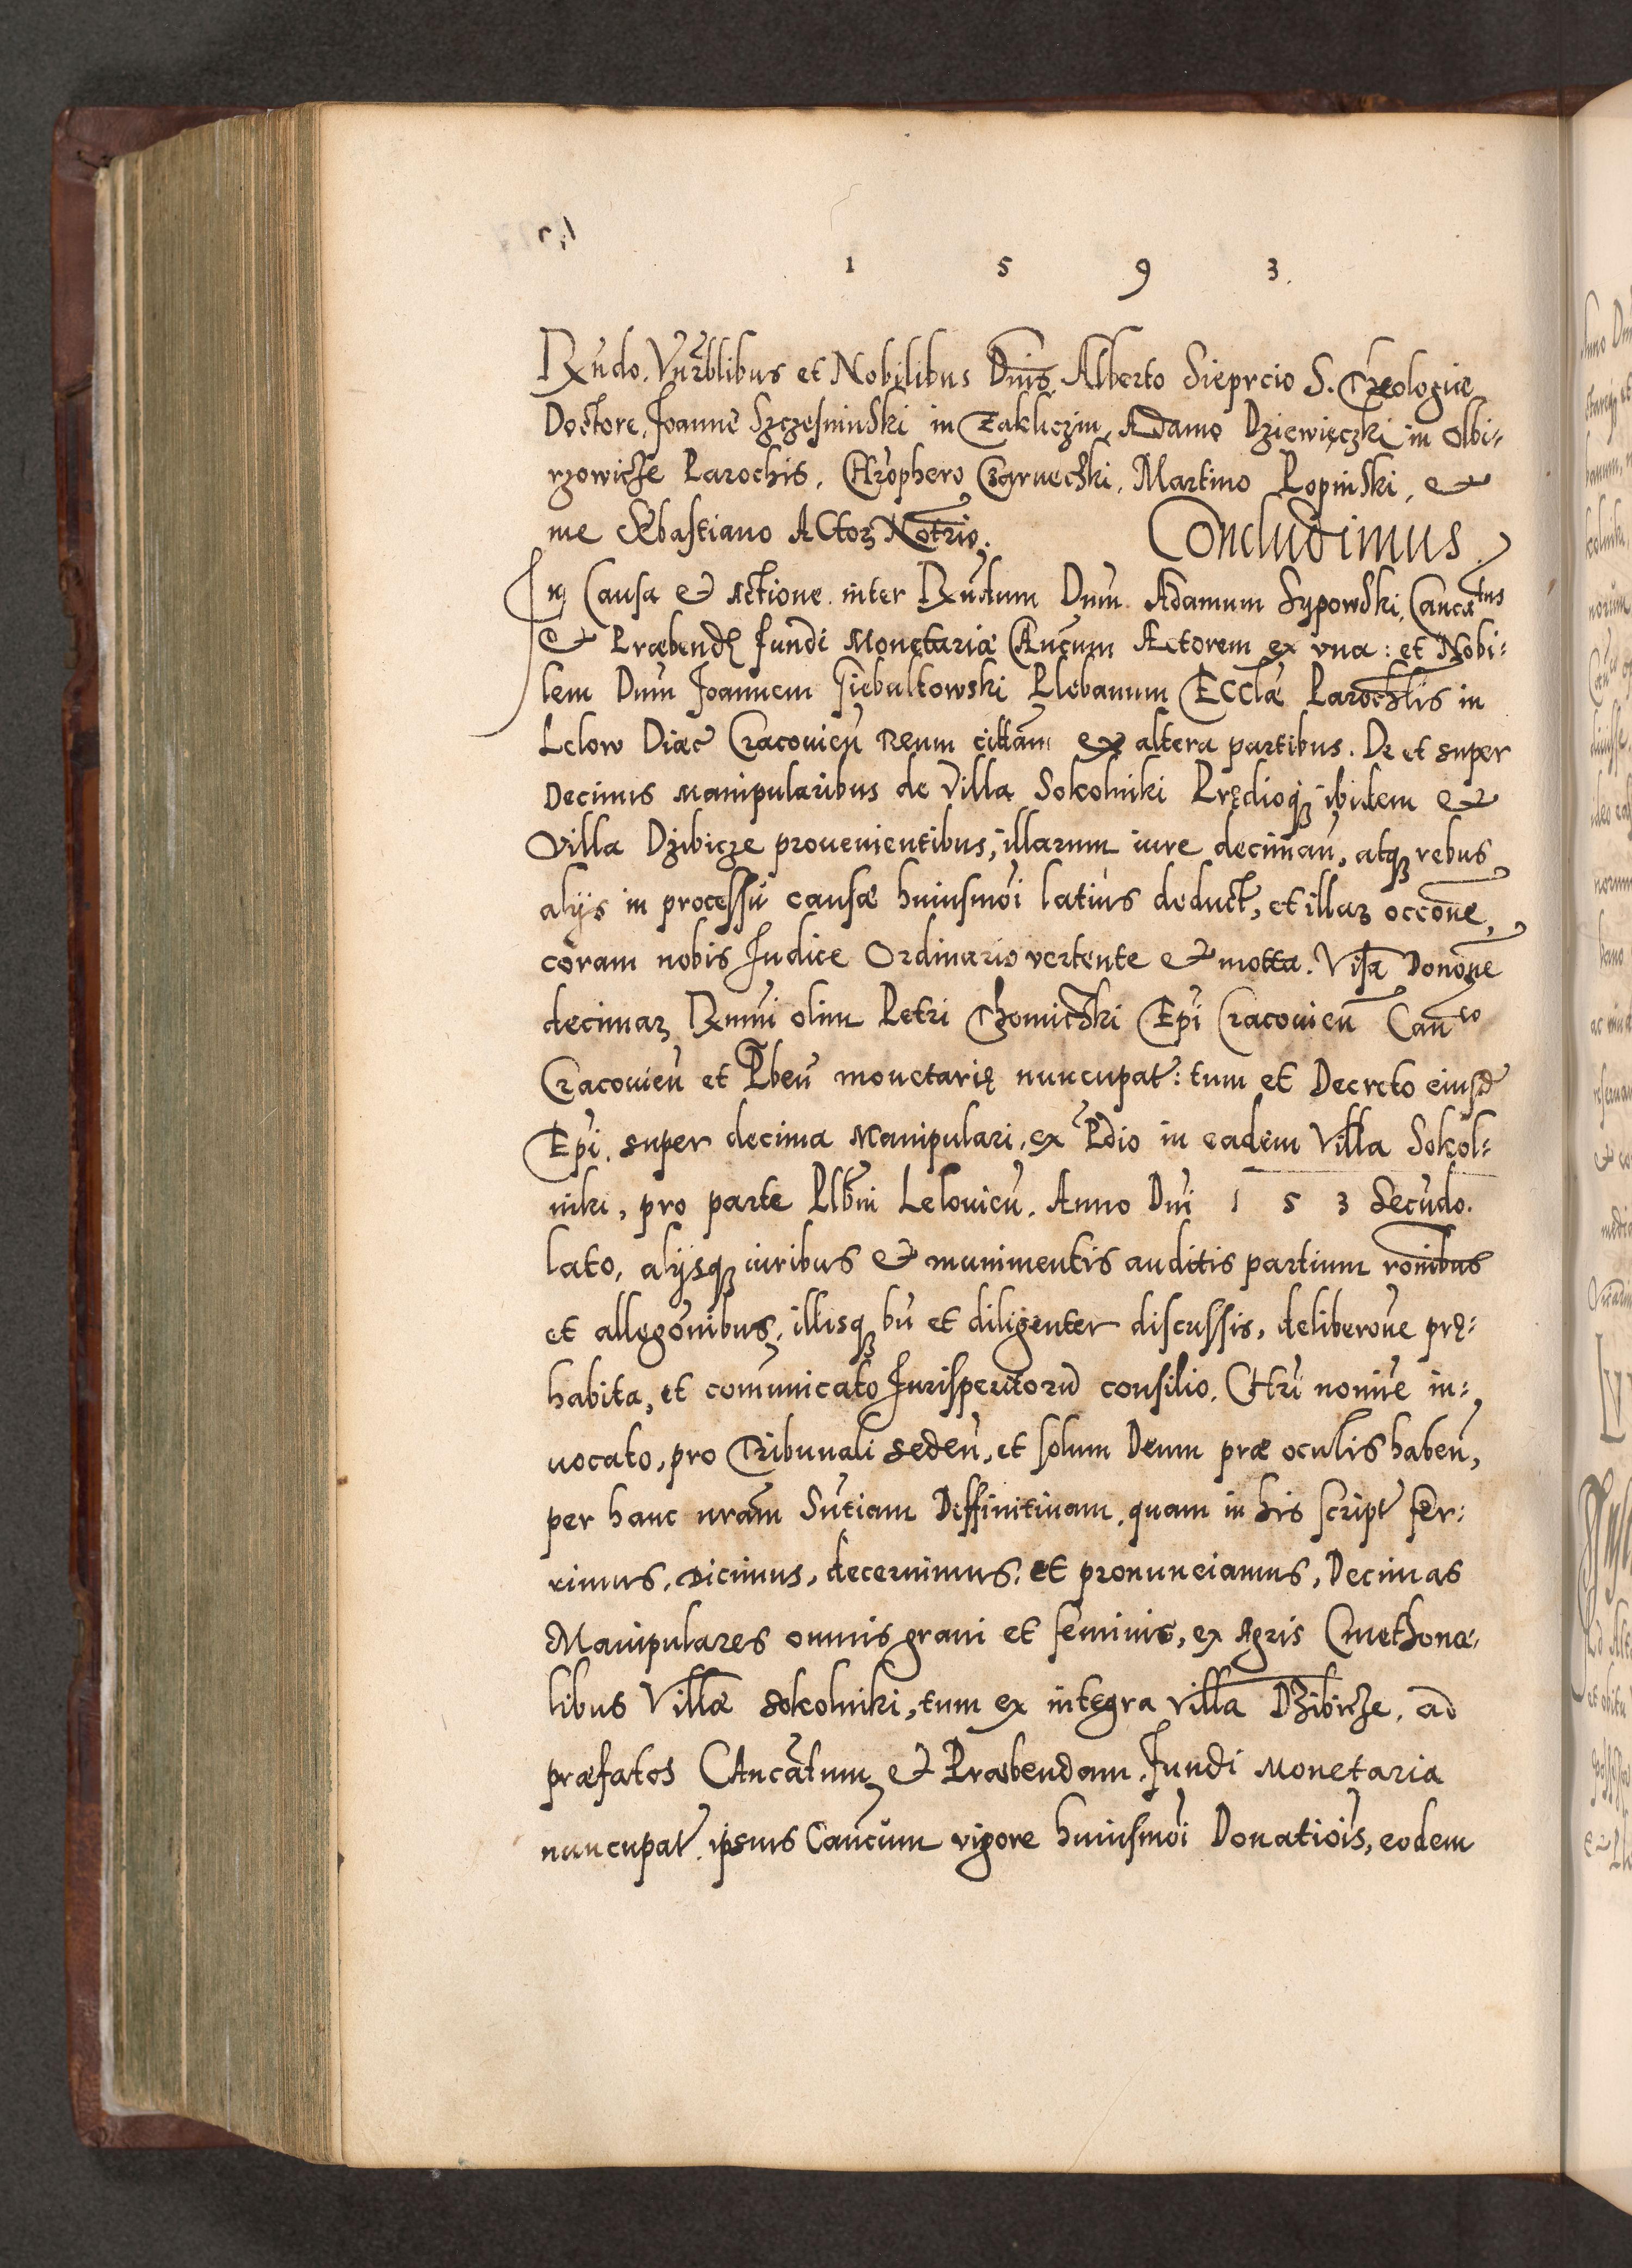 1 5 9 3.
Rndo. Vnrblibus et Nobilibus Dnis Alberto Sieprcio S. Theologiæ
Doctore, Joanne Szczesninski in Zakliczin, Adamo Dziewięczki in Olbi-
rzowicze Parochis, Chrophero Czarnecki, Martino Lopinski, et
me Sebastiano Actor Notrio. Concludimus.
In Causa et Actione inter Rndum Dnm Adamum Sypowski, Cancatus
et Præbendæ fundi Monetariæ Cancum Actorem ex vna: et Nobi-
lem Dnm Joannem Giebultowski Plebanum Ecclæ Parochlis in
Lelow Diæc Cracouien Reum cittam ex altera partibus. De et super
Decimis Manipularibus de Villa Sokolniki Prędioq ibidem et
Villa Dzibicze prouenientibus, illarum iure decimau, atq rebus
alijs in processu causæ huiusmoi latius deduct, et illar occone,
coram nobis Judice Ordinario vertente et motta. Visa Donone
decimar Rmmi olim Petri Thomiczki Epi Cracouien Canco
Cracouien et Pben monetarię nuncupat: tum et Decreto eiusd
Epi, super decima Manipulari, ex Pdio in eadem Villa Sokol-
niki, pro parte Plbni Lelouien. Anno Dni 1 5 3 Secudo.
lato, alijsq iuribus et munimentis auditis partium ronibus
et allegonibus, illisq bn et diligenter discussis, deliberone prę-
habita, et comunicato Jurisperitoru consilio. Chri nomine in-
uocato, pro Tribunali seden, et solum Deum præ oculis haben,
per hanc nram Sntiam Deffinitiuam, quam in his script fer-
rimus, dicimus, decernimus, et pronunciamus, Decimas
Manipulares omnis grani et seminis, ex Agris Cmethona-
libus Villæ Sokolniki, tum ex integra villa Dzibicze, ad
præfatos Cancatum et Præbendam. Fundi Monetaria
nuncupat ipsius Cancum vigore huiusmoi Donatiois, eodem